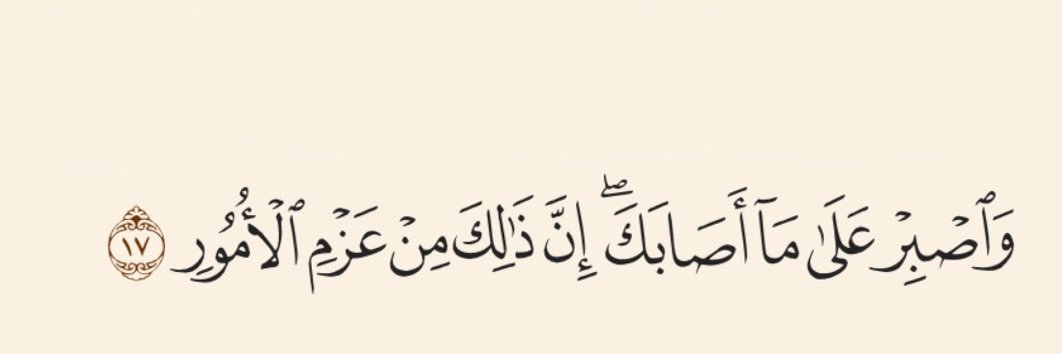 وَٱصۡبِرۡ عَلَىٰ مَآ أَصَابَكَۖ إِنَّ ذَٰلِكَ مِنۡ عَزۡمِ ٱلۡأُمُورِ ١٧